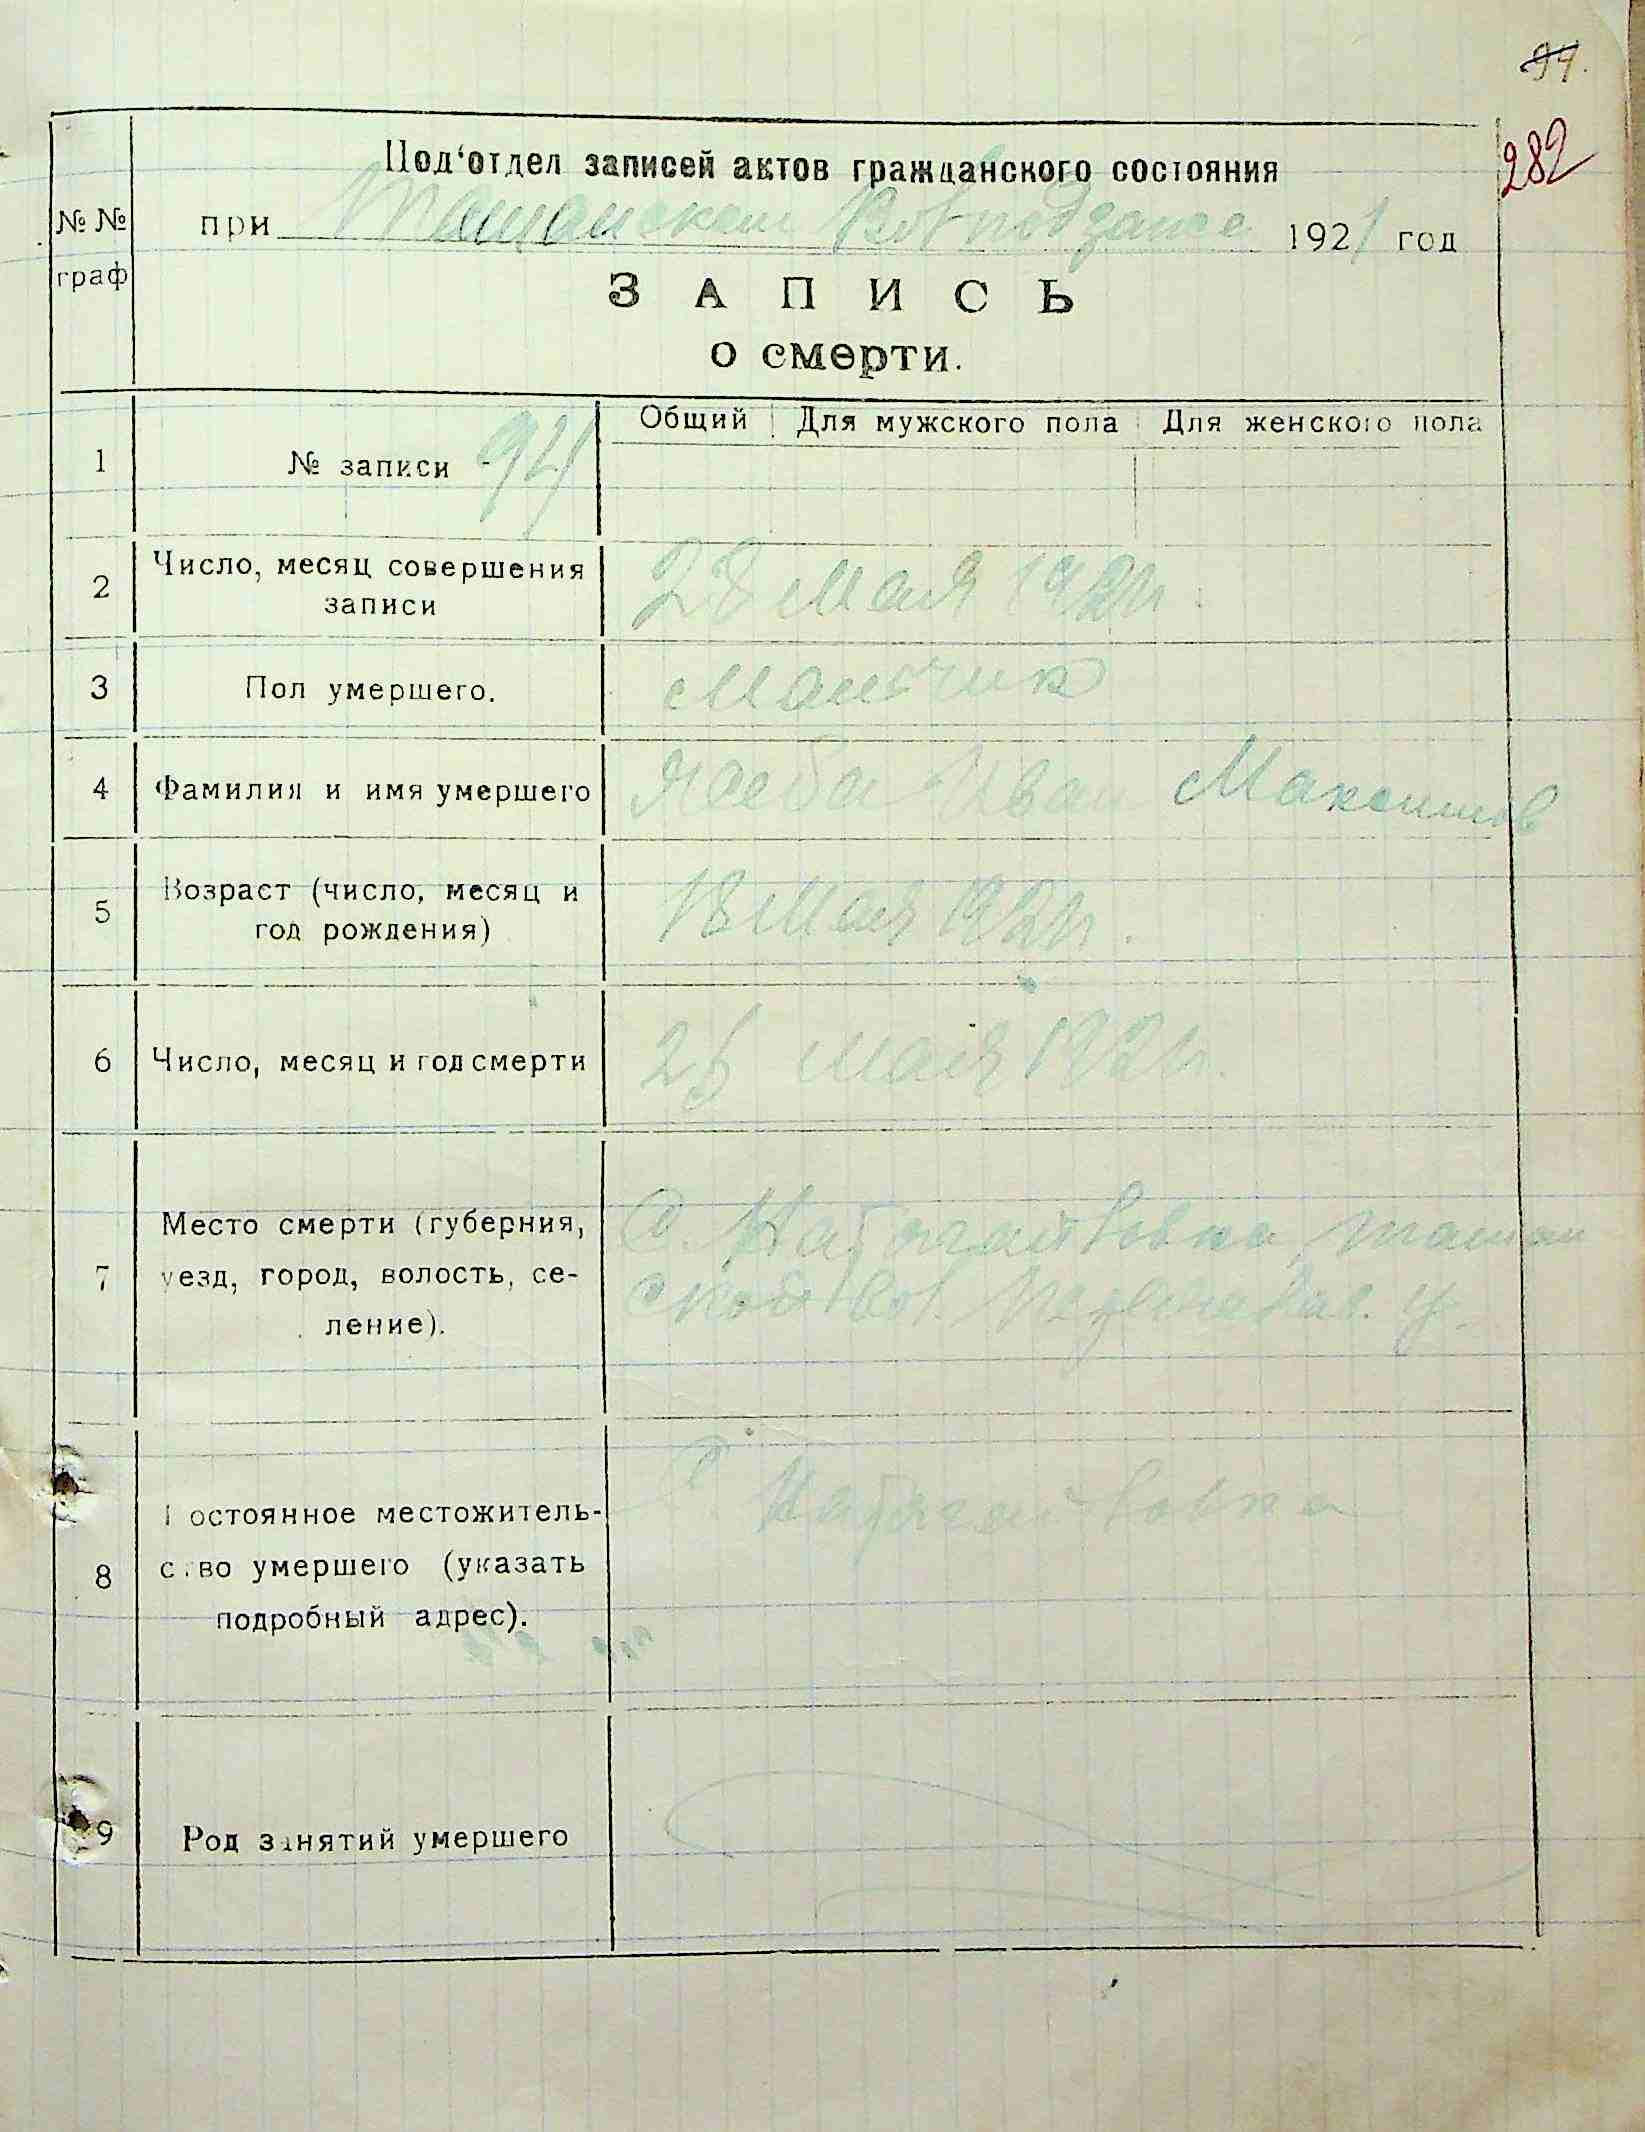 94.
282
Под'отдел записей актов гражданского состояния
№ №
граф
при Ташанском Волподзагсе 1921 год
ЗАПИСЬ
о смерти.
Общий Для мужского пола Для женского пола
1 № записи 94
2 Число, месяц совершения
записи
28 мая 1921 г.
3 Пол умершего. Мальчик
4 Фамилия и имя умершего Иван Максимов
5 Возраст (число, месяц и
год рождения)
18 мая 1921 г.
6 Число, месяц и год смерти 26 мая 1921 г.
7 Место смерти (губерния,
уезд, город, волость, се-
ление).
С. Ташан
ской вол. у.
8 Постоянное местожитель-
ство умершего (указать
подробный адрес).
С.
9 Род занятий умершего